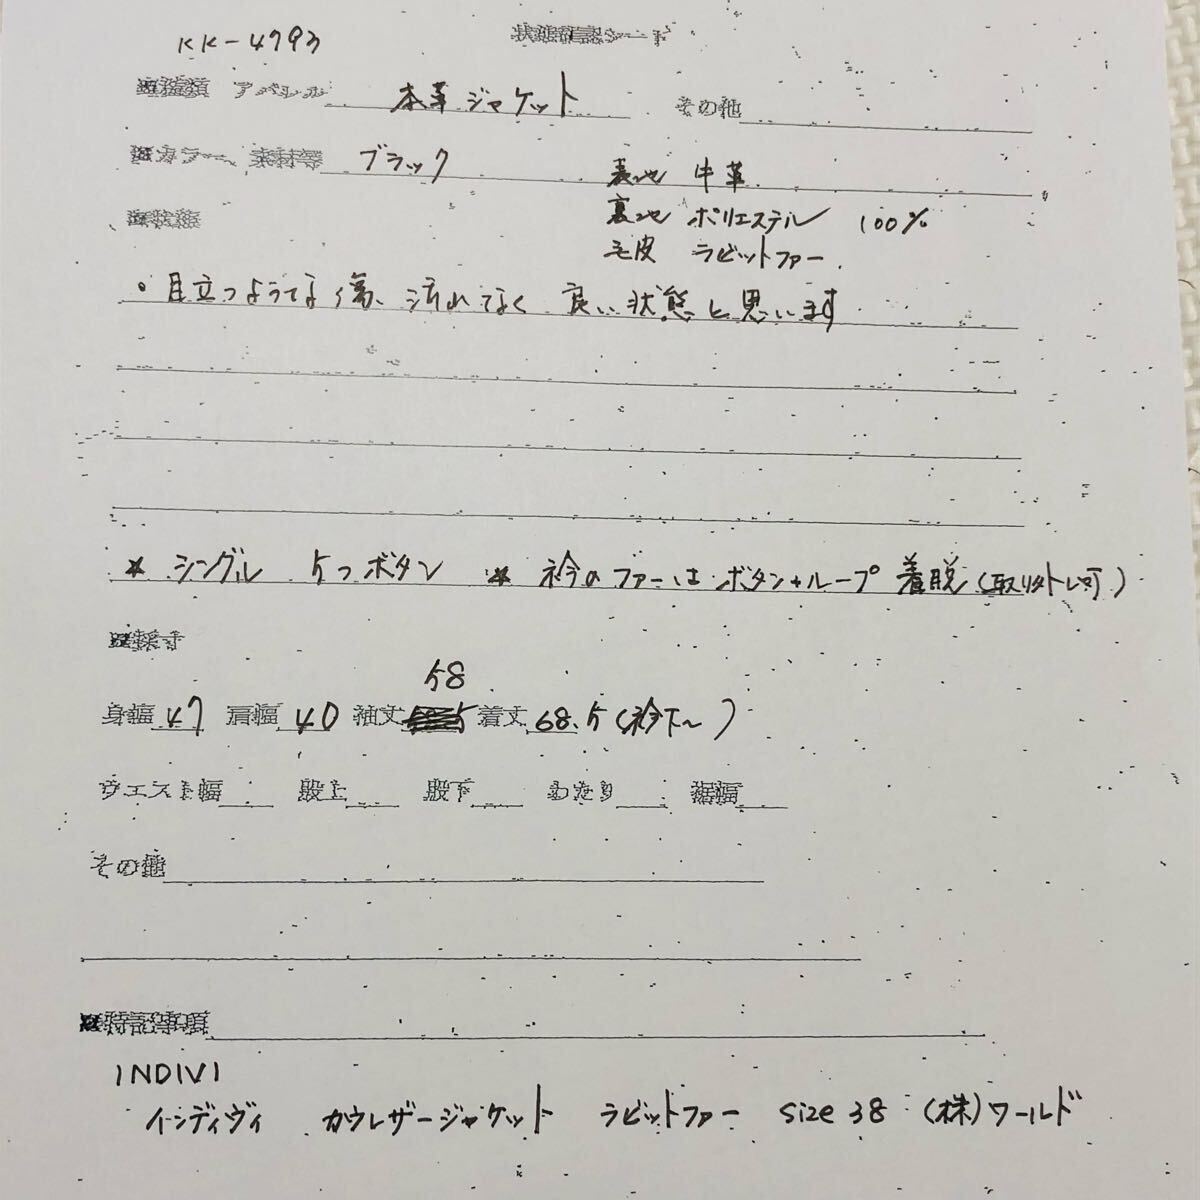 KK-4793 状態確認シート
■種類 アパレル 本革ジャケット その他
■カラー、素材等 ブラック 表地 牛革
■状態 裏地 ポリエステル 100%
毛皮 ラビットファー
・目立つようてな傷、汚れてなく 良い状態と思います
* シングル 5つボタン * 衿のファーはボタン+ループ 着脱(取り外し可)
■採寸
58
身幅 47 肩幅 40 袖丈 着丈 68.5(衿下〜)
ウエスト幅 股上 股下 わたり 裾幅
その他
■特記事項
INDIVI
インディヴィ カウレザージャケット ラビットファー size 38 (株)ワールド